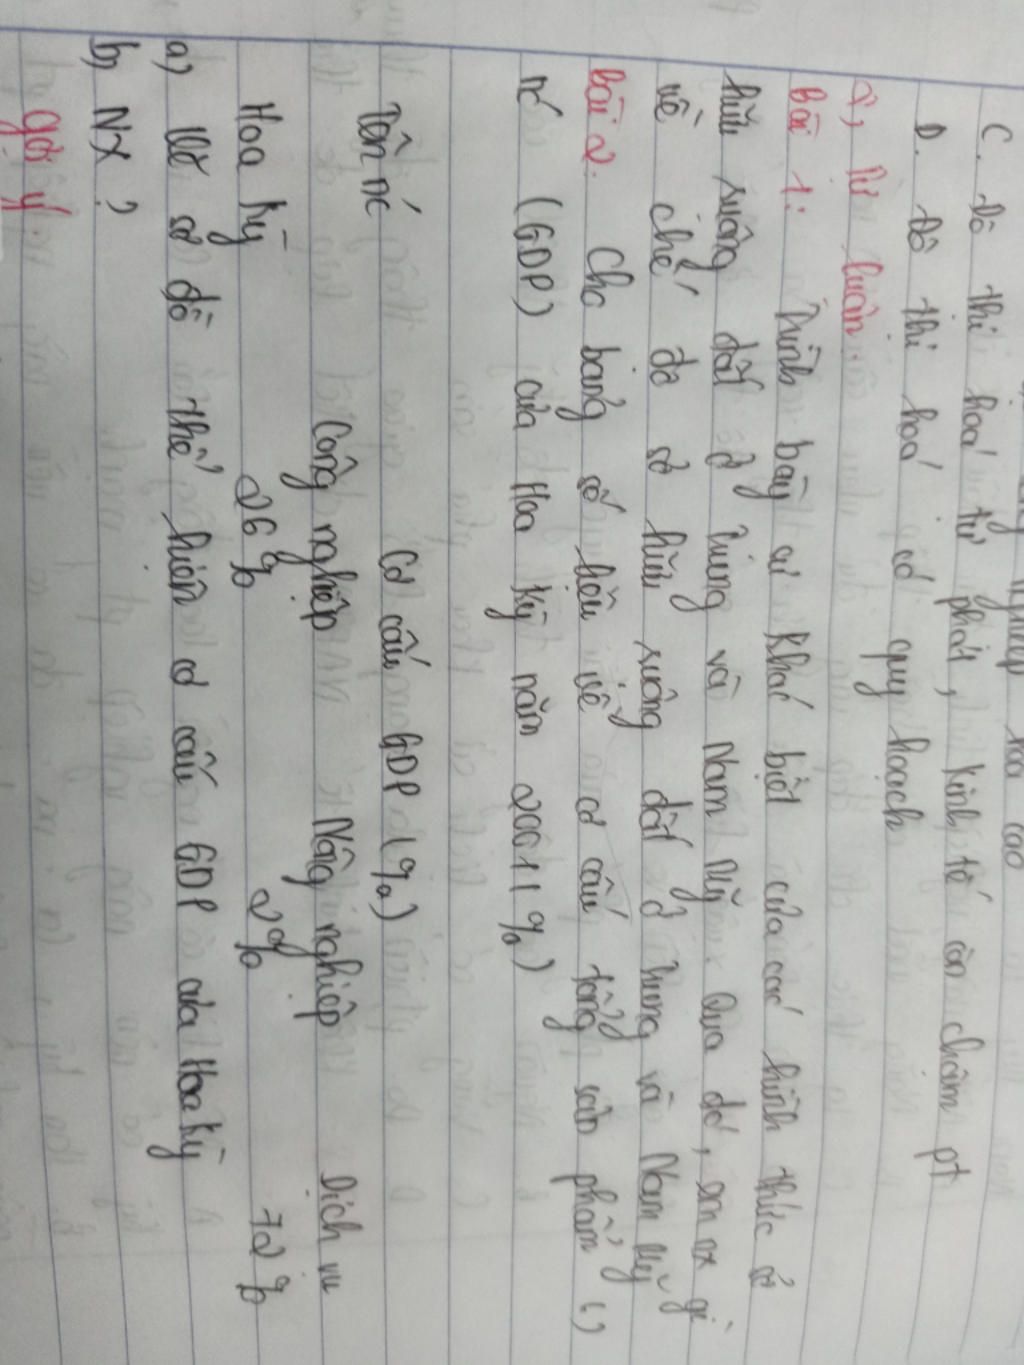 nghiệp hoá cao
C. Đô thị hoá tự phát, kinh tế còn chậm pt
D. Đô thị hoá có quy hoạch
2, Tự luận
Bài 1: Trình bày sự khác biệt của các hình thức sở
hữu ruộng đất ở Trung và Nam Mỹ. Qua đó, em nx gì
về chế độ sở hữu ruộng đất ở Trung và Nam Mỹ
Bài 2. Cho bảng số liệu về cơ cấu tổng sản phẩm (
nc (GDP) của Hoa Kỳ năm 2001 (%)
Tên nc Cơ cấu GDP (%)
Công nghiệp Nông nghiệp Dịch vụ
Hoa Kỳ 26% 2% 72%
a) Vẽ sơ đồ thể hiện cơ cấu GDP của Hoa Kỳ
b, NX?
gợi ý